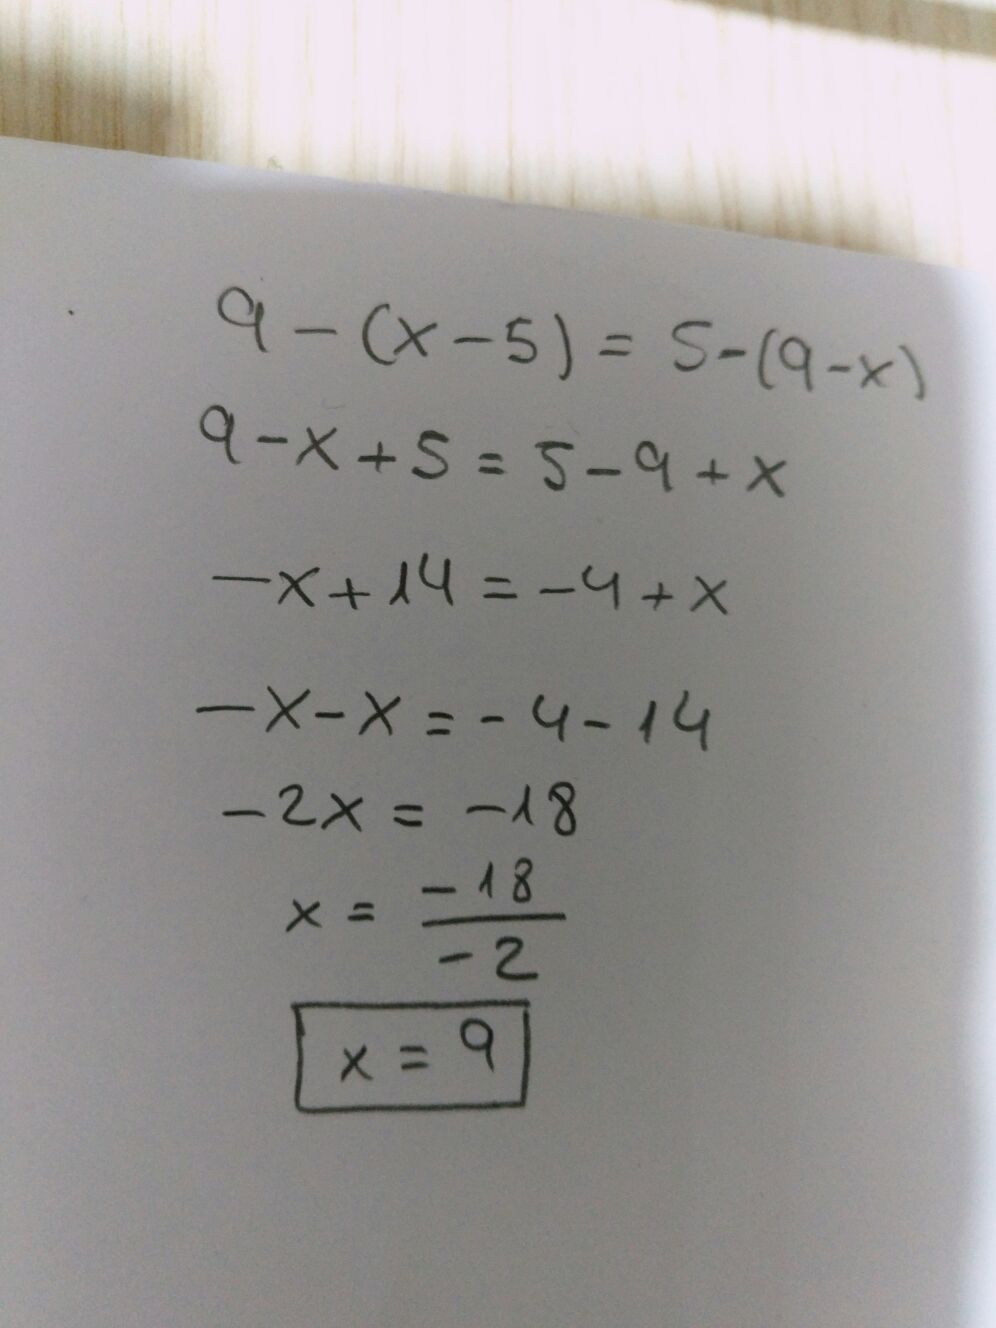 9 - (x - 5) = 5 - (9 - x)
9 - x + 5 = 5 - 9 + x
- x + 14 = - 4 + x
- x - x = - 4 - 14
- 2x = - 18
x = \frac{-18}{-2}
x = 9